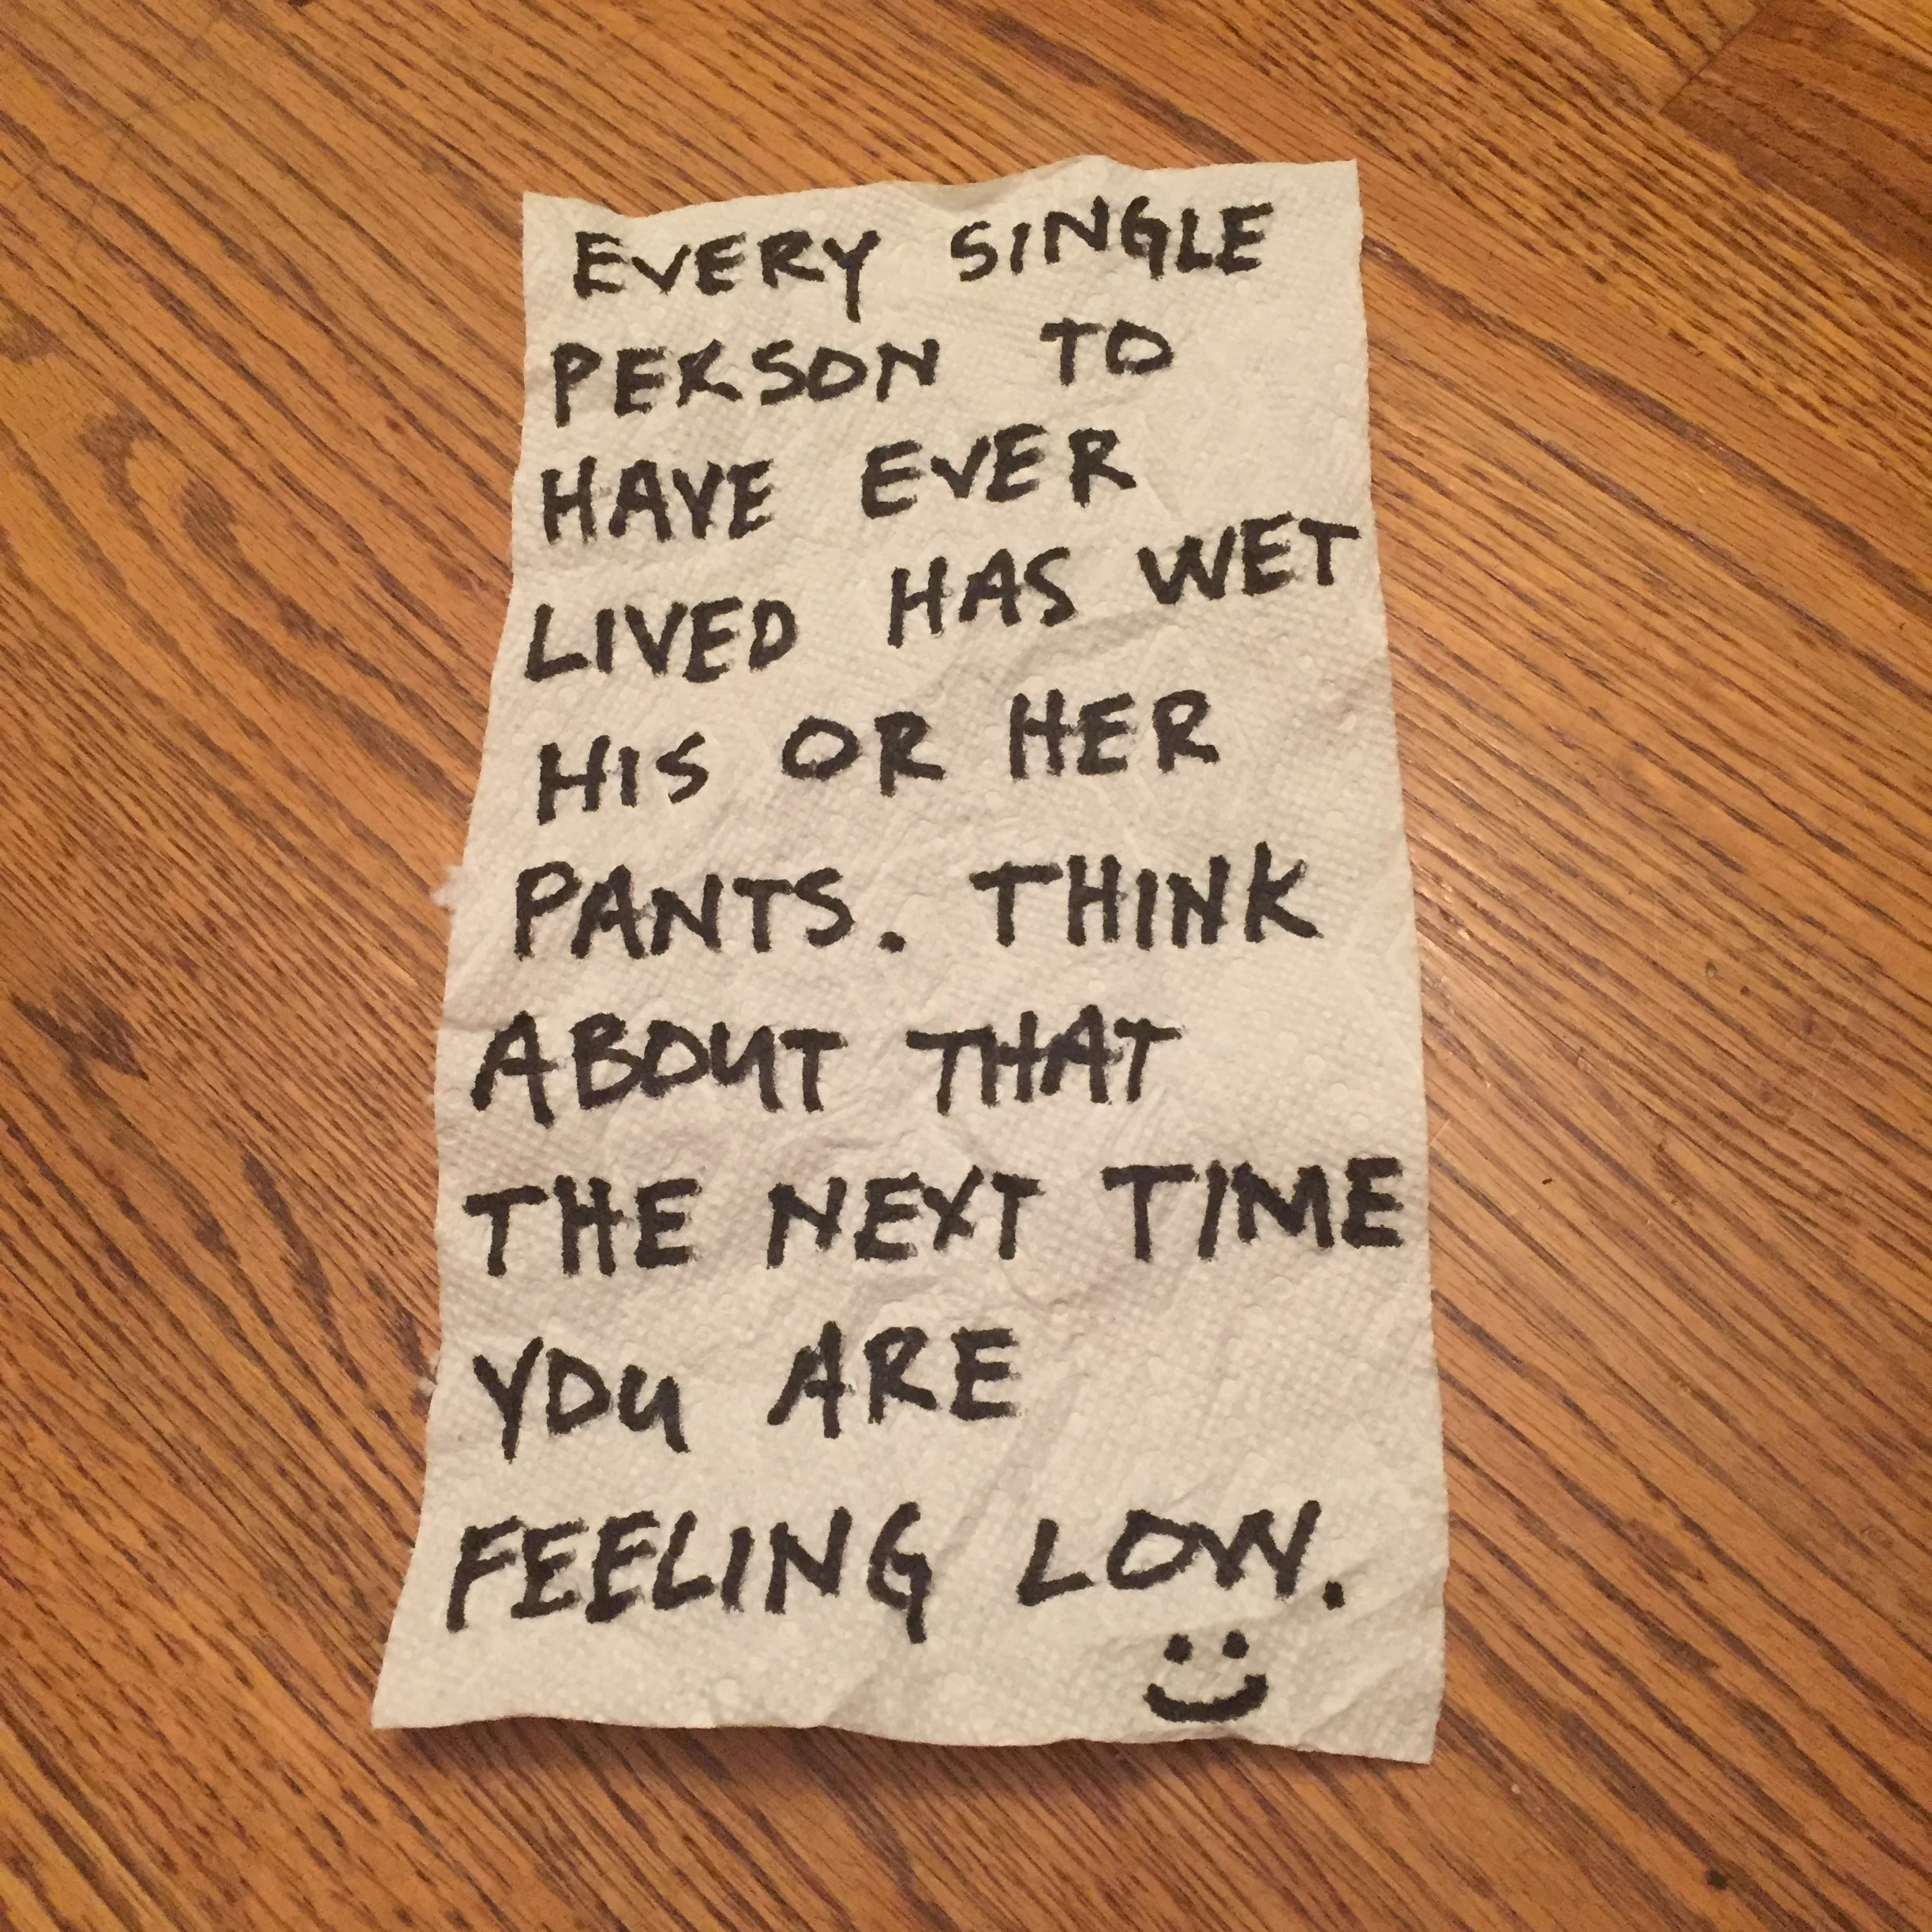 EVERY SINGLE
PERSON TO
HAVE EVER
LIVED HAS WET
HIS OR HER
PANTS. THINK
ABOUT THAT
THE NEXT TIME
YOU ARE
FEELING LOW.